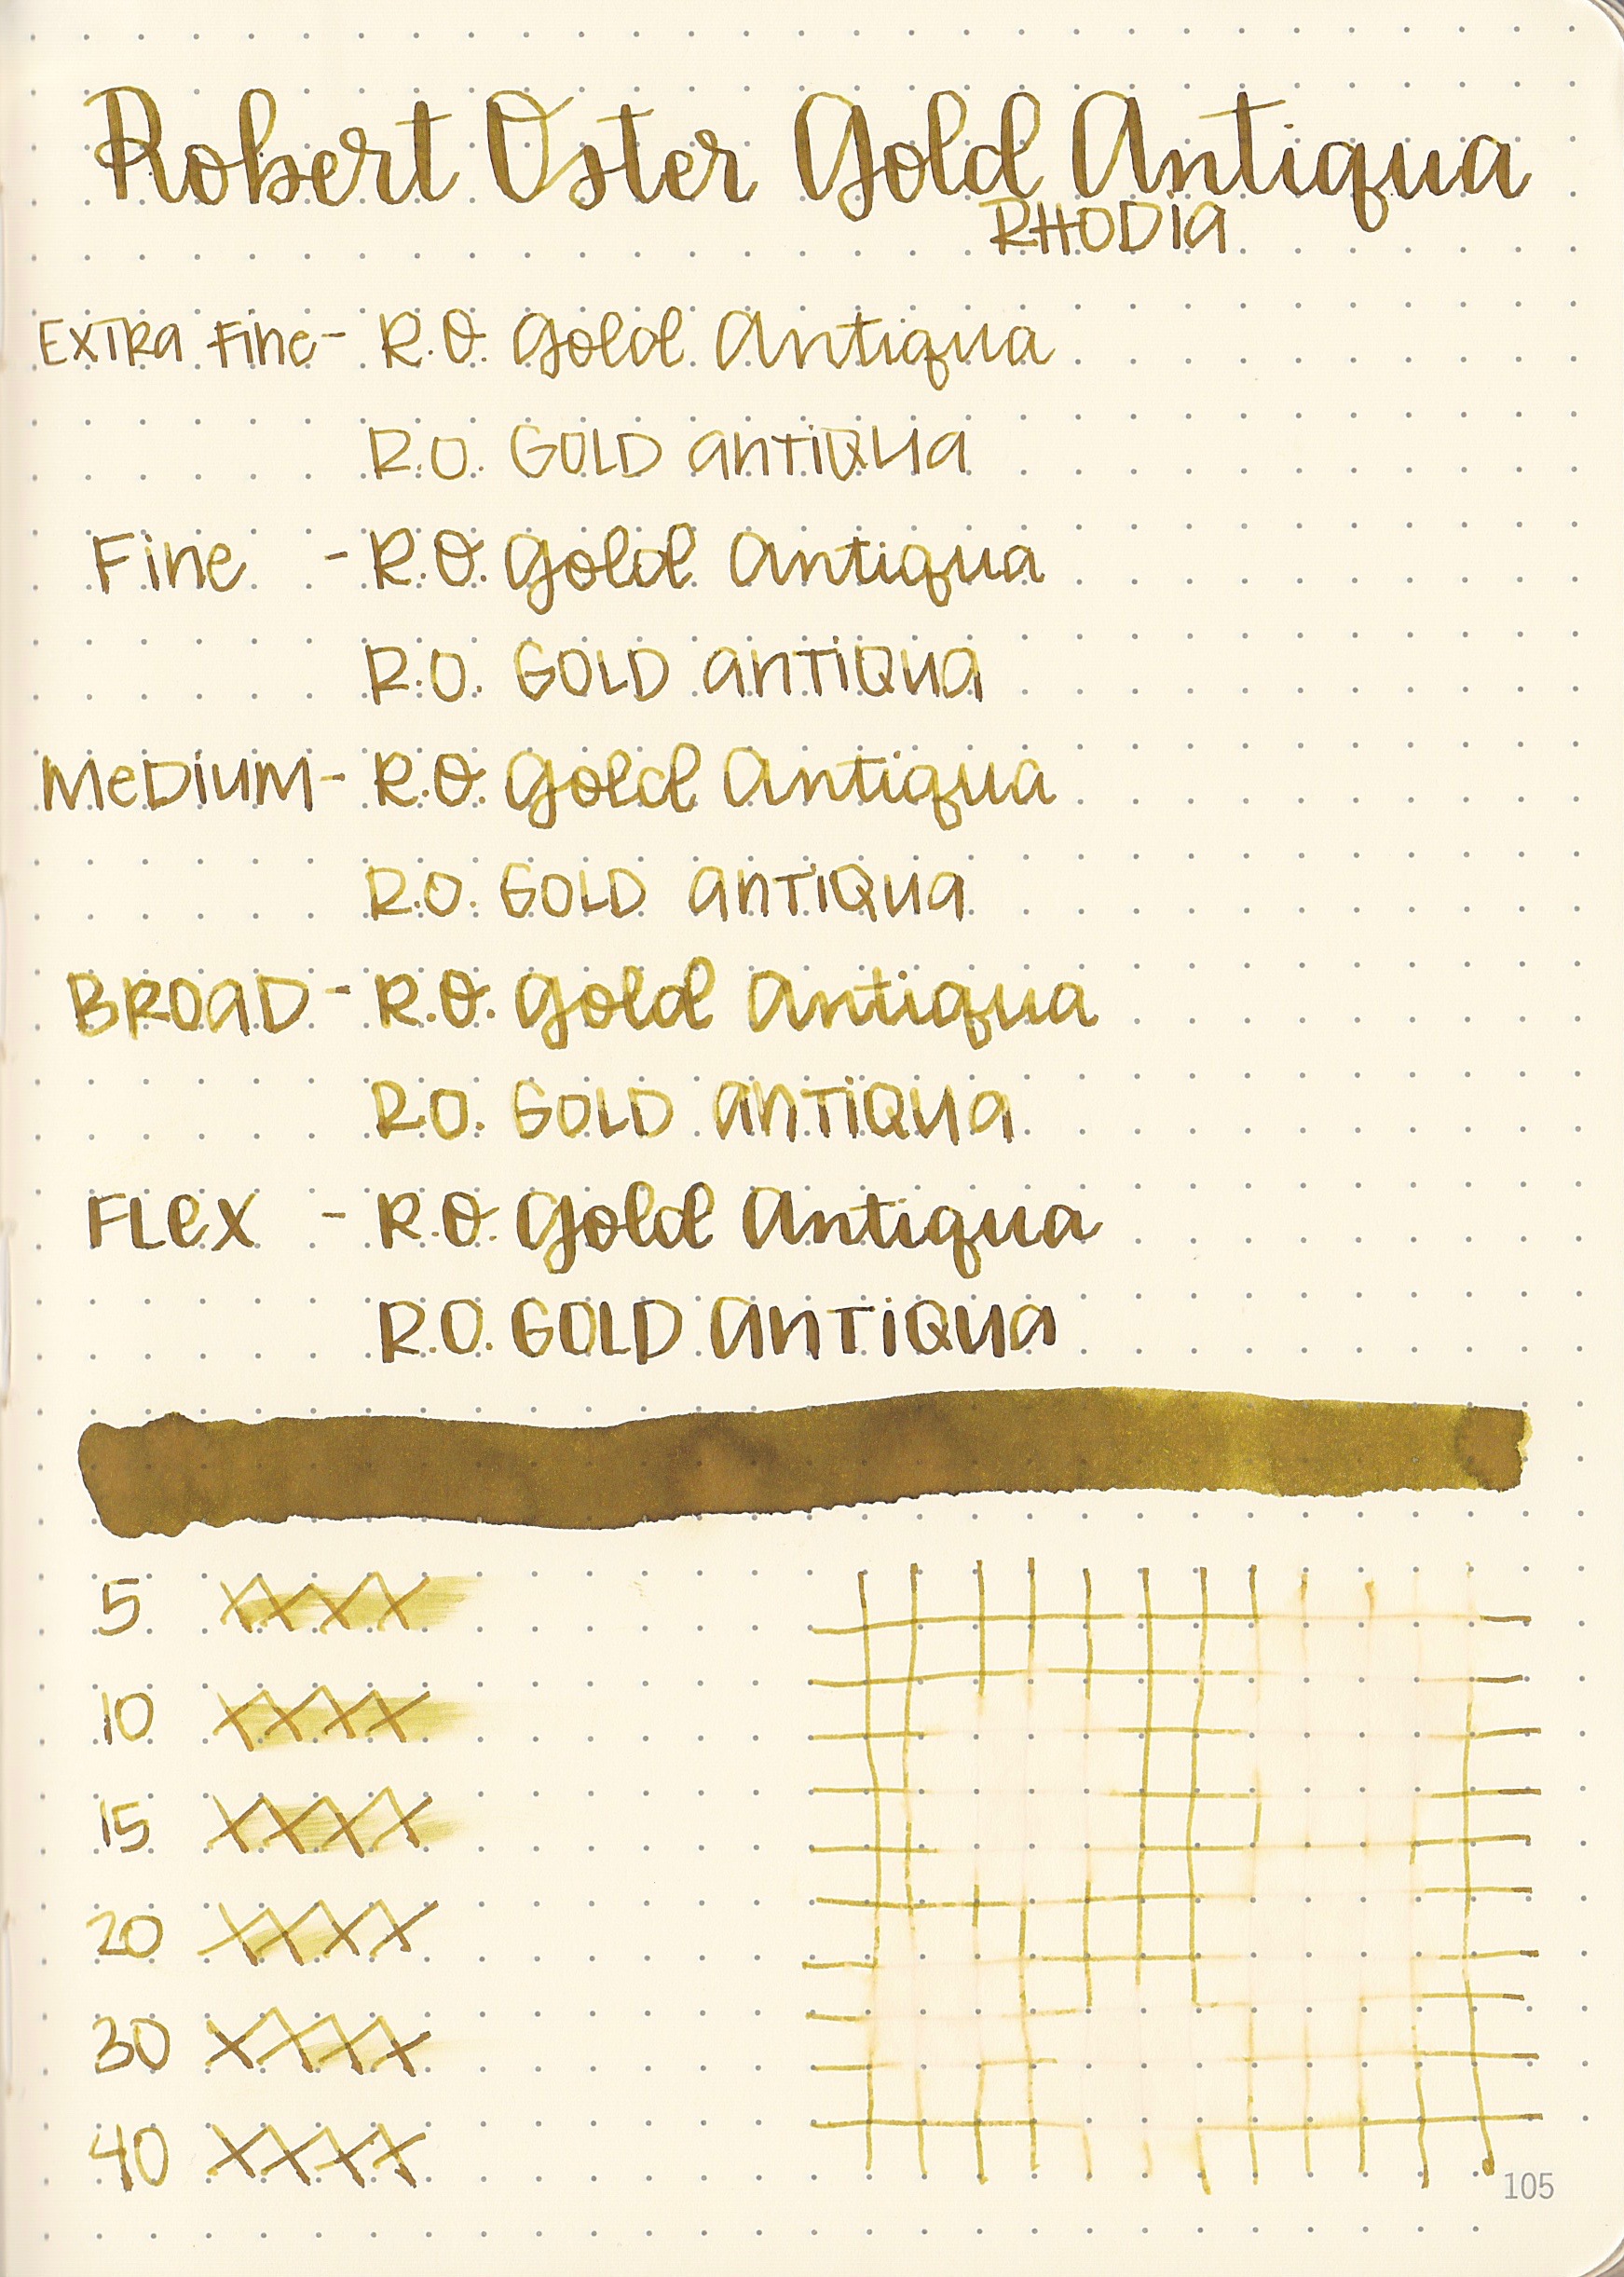 Robert Oster Gold Antiqua
RHODIA
EXTRA FINE- R.O. Gold Antiqua
R.O. GOLD ANTIQUA
Fine - R.O. Gold Antiqua
R.O. GOLD ANTIQUA
MeDIUM- R.O. Gold Antiqua
R.O. GOLD ANTIQUA
BROAD- R.O. Gold Antiqua
R.O. GOLD ANTIQUA
FLex - R.O. Gold Antiqua
R.O. GOLD ANTIQUA
5 XXXX
10 XXXX
15 XXXX
20 XXXX
30 XXXX
40 XXXX
105